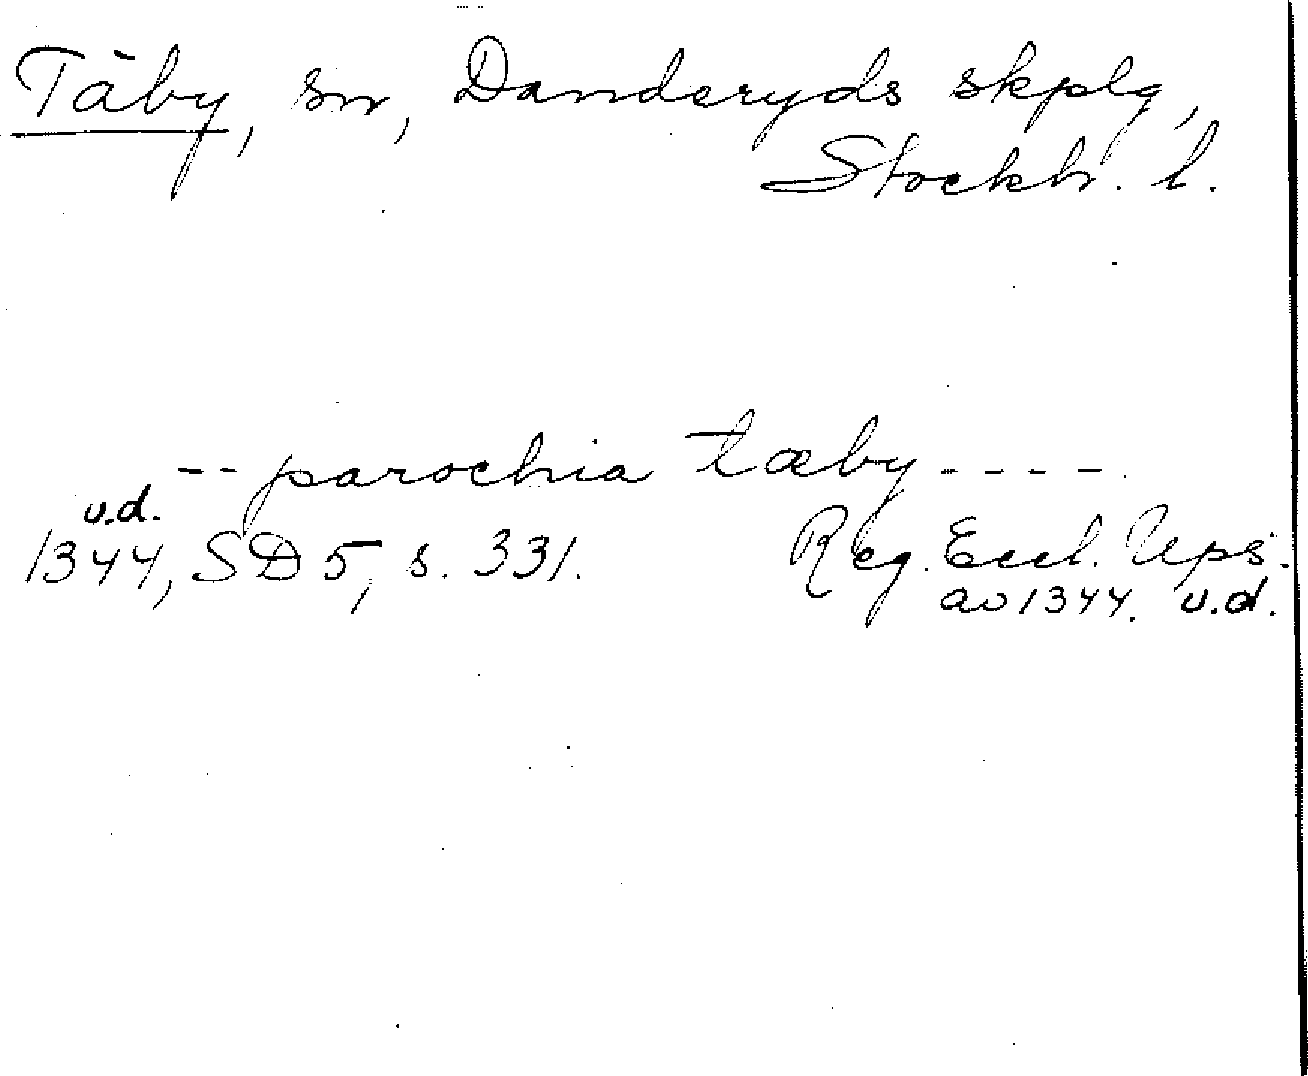 Täby, sn, Danderyds skplg,
Stockh. l.
-- parochia tæby ----.
u.d.
1344, SD 5, s. 331.
Reg. Eccl. Ups.
av 1344. u.d.